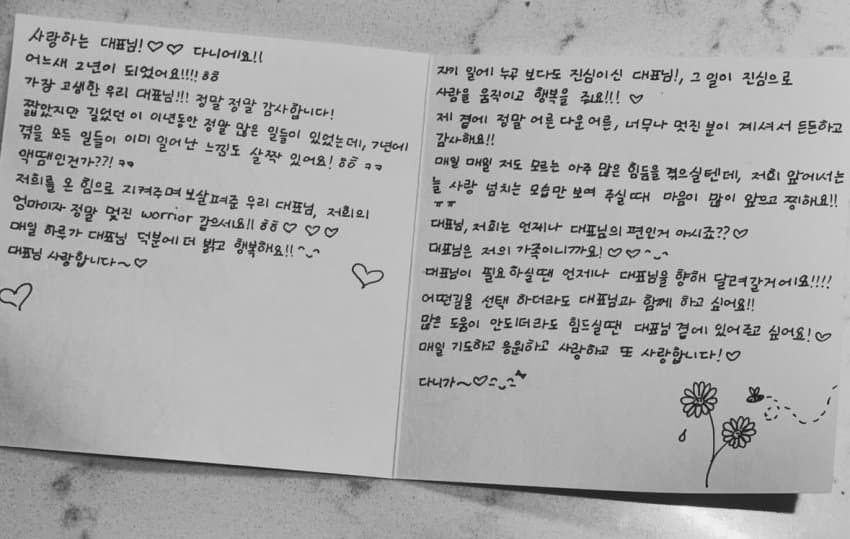 사랑하는 대표님!♡♡ 다니에요!!
어느새 2년이 되었어요!!!! ㅎㅎ
가장 고생한 우리 대표님!!! 정말 정말 감사합니다!
짧았지만 길었던 이 이년동안 정말 많은 일들이 있었는데, 7년에
겪을 모든 일들이 이미 일어난 느낌도 살짝 있어요! ㅎㅎ ㅋㅋ
액땜인건가??! ㅋㅋ
저희를 온 힘으로 지켜주며 보살펴준 우리 대표님, 저희의
엄마이자 정말 멋진 worrior 같으세요!! ㅎㅎ ♡ ♡ ♡
매일 하루가 대표님 덕분에 더 밝고 행복해요!! ^_^
대표님 사랑합니다~♡
자기 일에 누구 보다도 진심이신 대표님!, 그 일이 진심으로
사람을 움직이고 행복을 줘요!!! ♡
제 곁에 정말 어른 다운 어른, 너무나 멋진 분이 계셔서 든든하고
감사해요!!
매일 매일 저도 모르는 아주 많은 힘듦을 겪으실텐데, 저희 앞에서는
늘 사랑 넘치는 모습만 보여 주실때 마음이 많이 아프고 찡해요!!
ㅠㅠ
대표님, 저희는 언제나 대표님의 편인거 아시죠??♡
대표님은 저의 가족이니까요! ♡♡ ^_^
대표님이 필요하실땐 언제나 대표님을 향해 달려갈거에요!!!!
어떤길을 선택 하더라도 대표님과 함께 하고 싶어요!!
많은 도움이 안되더라도 힘드실땐 대표님 곁에 있어주고 싶어요!♡
매일 기도하고 응원하고 사랑하고 또 사랑합니다!♡
다니가~♡